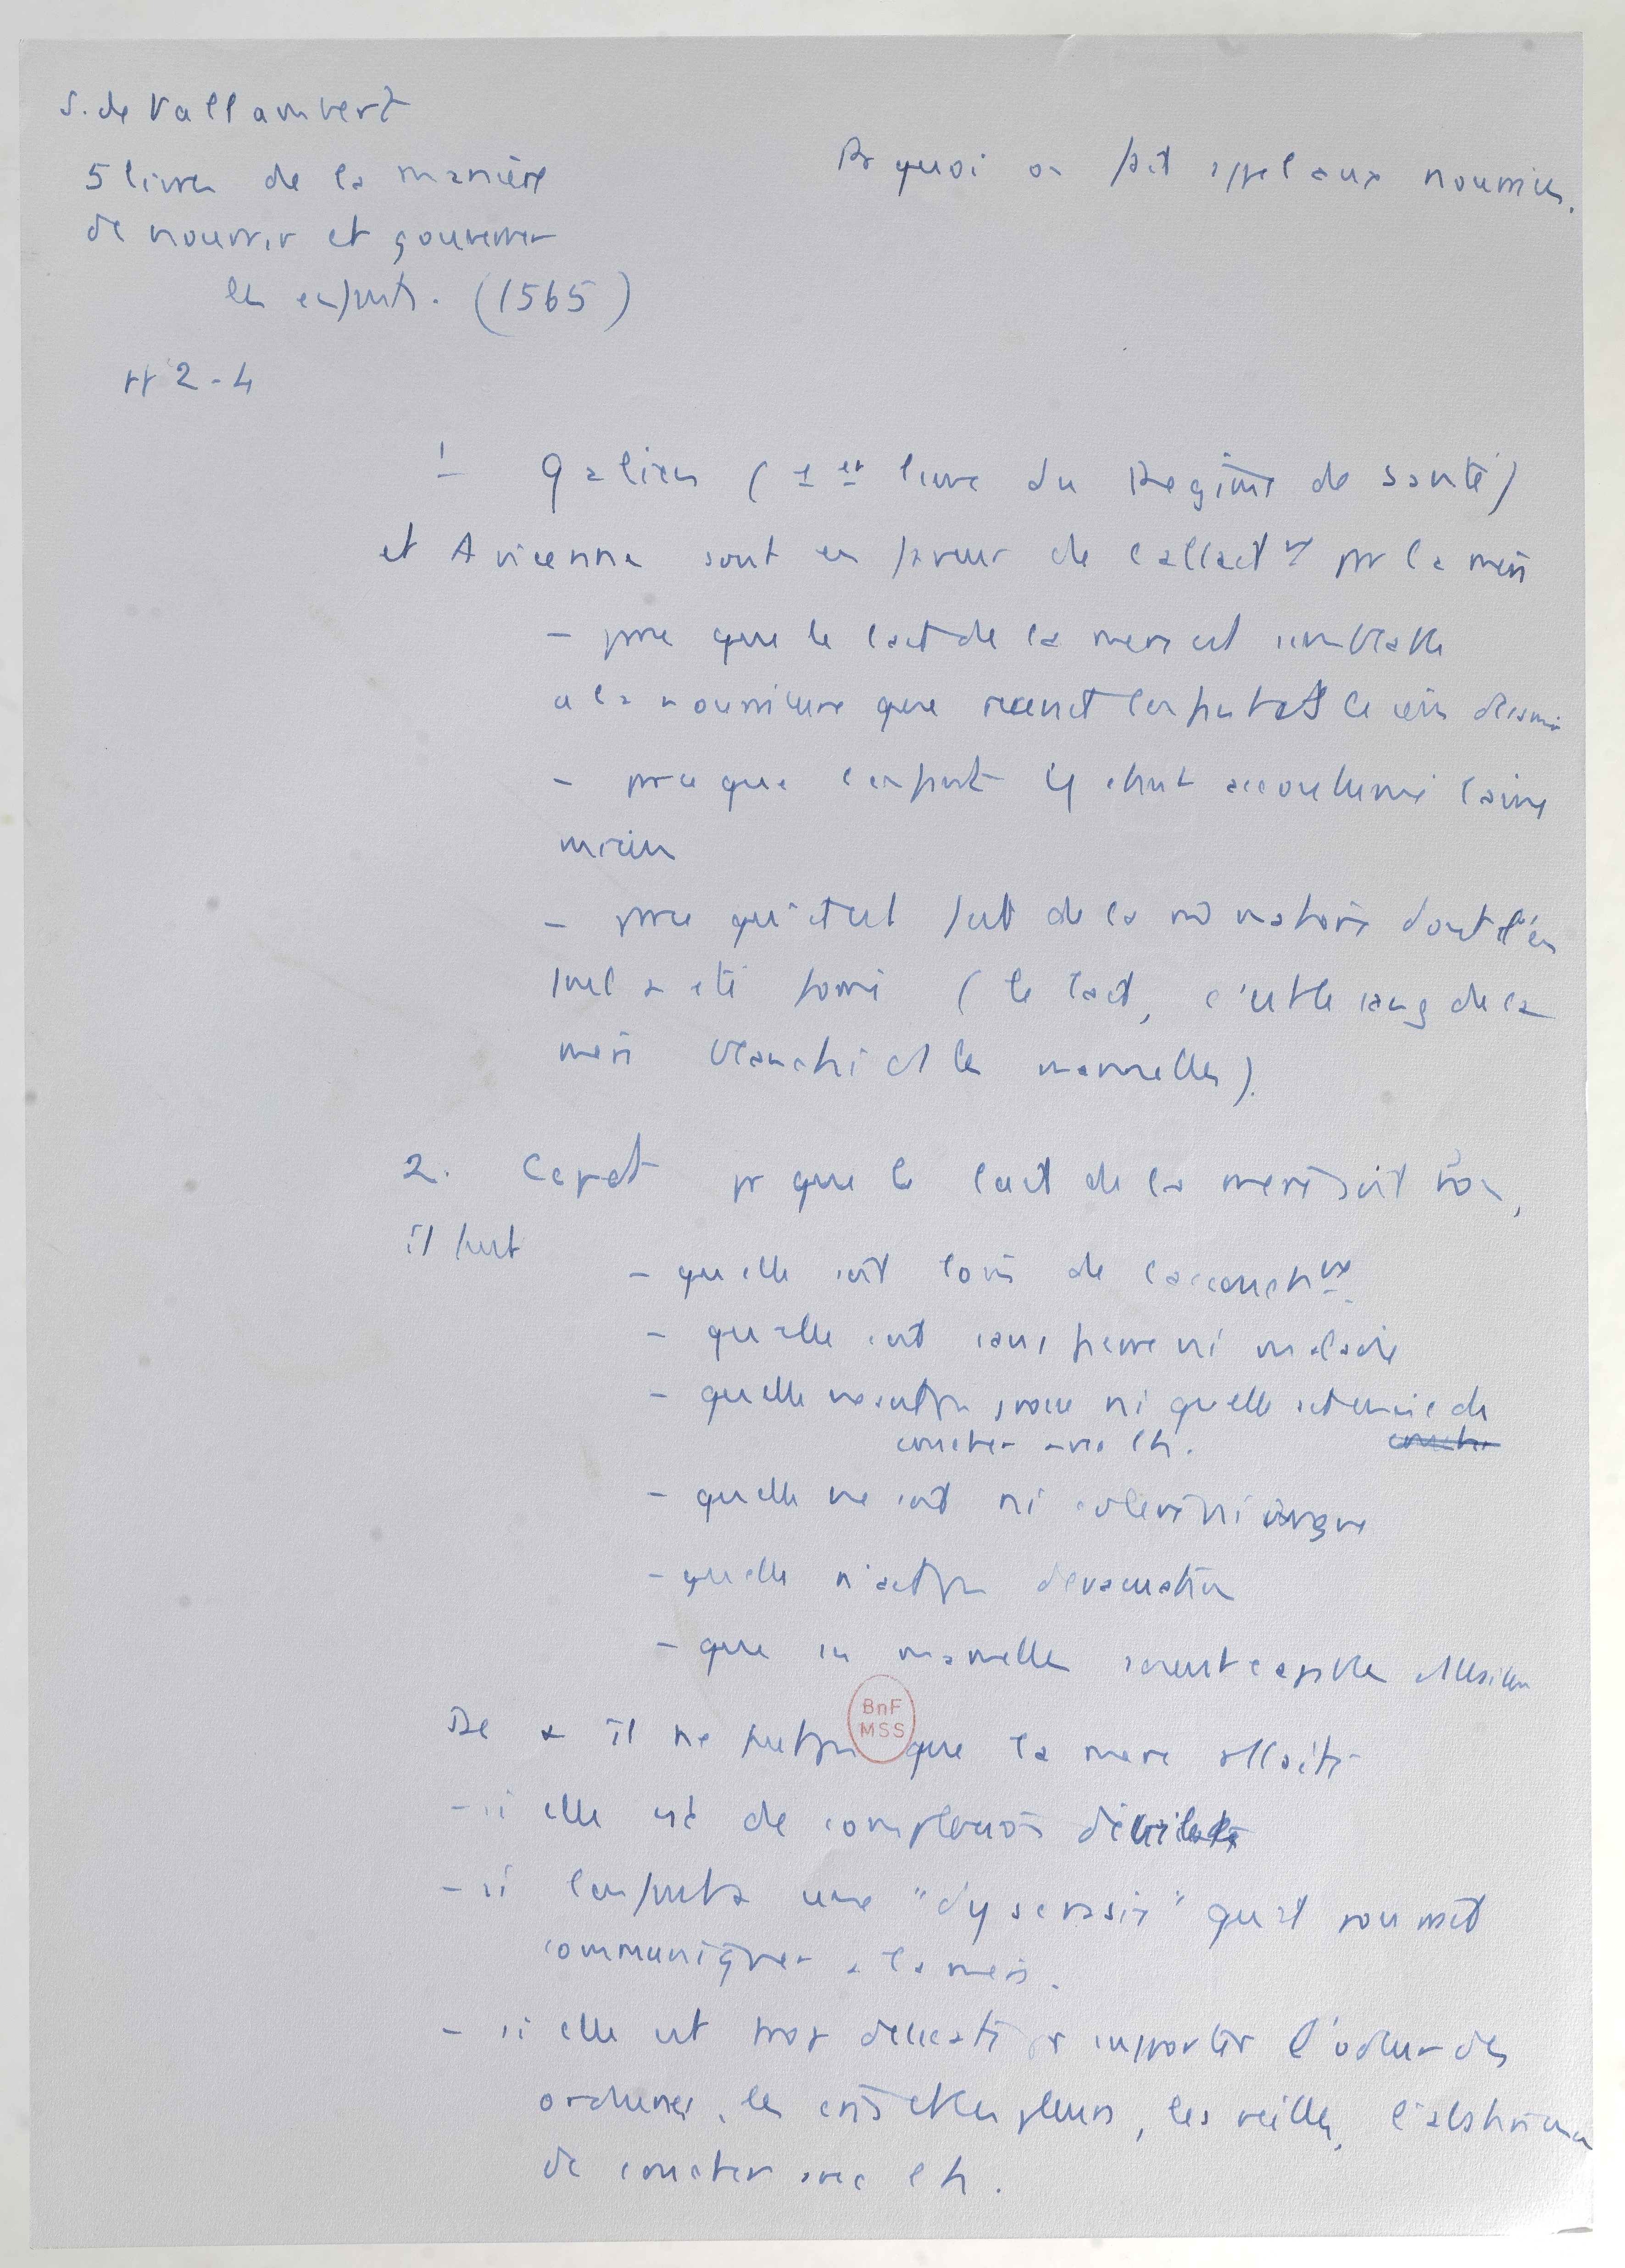 S. de Vallambert
5 livres de la manière
de nourrir et gouverner
les enfants. (1565)
pp 2-4
Pr quoi on fait appel aux nourrices.
1 Galien (1er livre du Régime de santé)
et Avicenne sont en faveur de l'allactnt par la mère
- parce que le lait de la mère est semblable
a la nourriture que recevait l'enfant ds le sein
- parce que l'enfant y étant accoutumé l'aime
mieux
- parce qu'il est fait de la m matière dont l'en
fant a été formé (le lait, c'est le sang de la
mère blanchi ds les mamelles).
2. Cepdt pr que le lait de la mère soit bon,
il faut
- qu'elle soit loin de l'accouchnt
- qu'elle soit sans fièvre ni maladie
- qu'elle ne soit pas grosse ni qu'elle ait envie de
coucher avec l'h.
- qu'elle ne soit ni colère ni
- qu'elle n'ait pas d'évacuation
- que ses mamelles soient capables
De + il ne faut pas que la mère allaite
BnF
MSS
- si elle est de complexion débile
- si l'enfant a une "dyscrasie" qu'il pourrait
communiquer a la mère.
- si elle est trop délicate pr supporter l'odeur des
ordures, les cris et les pleurs, les veilles, l'abstinence
de coucher avec l'h.